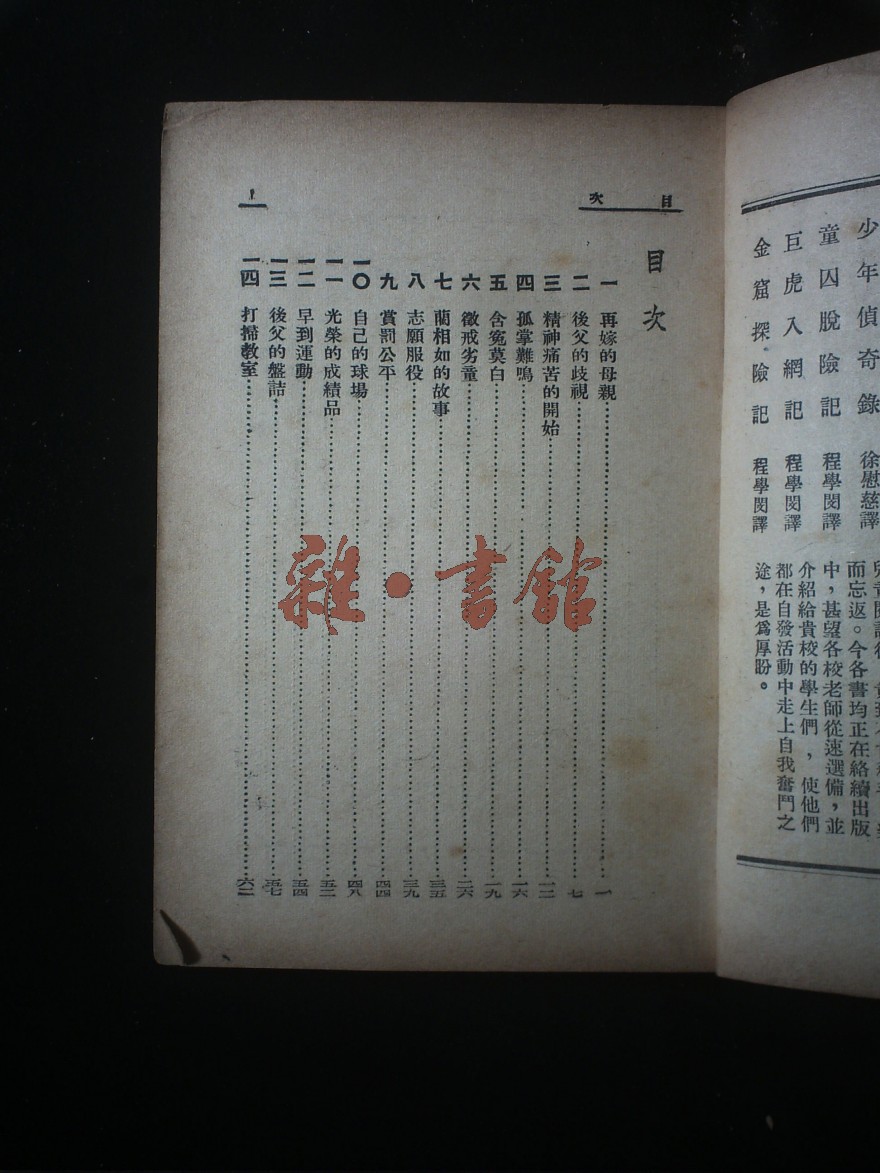 少年偵奇錄 徐慰慈譯
童囚脫險記 程學閔譯
巨虎入網記 程學閔譯
金窟探險記 程學閔譯
而忘返。今各書均正在絡續出版
中，甚望各校老師從速選備，並
介紹給貴校的學生們，使他們
都在自發活動中走上自我奮鬥之
途，是爲厚盼。
目次
目次
一 再嫁的母親 一
二 後父的歧視 七
三 精神痛苦的開始 一二
四 孤掌難鳴 一六
五 含冤莫白 一九
六 懲戒劣童 二六
七 藺相如的故事 三五
八 志願服役 三九
九 賞罰公平 四四
一〇 自己的球場 四八
一一 光榮的成績品 五二
一二 早到運動 五四
一三 後父的盤詰 五七
一四 打掃教室 六二
1
雜·書館